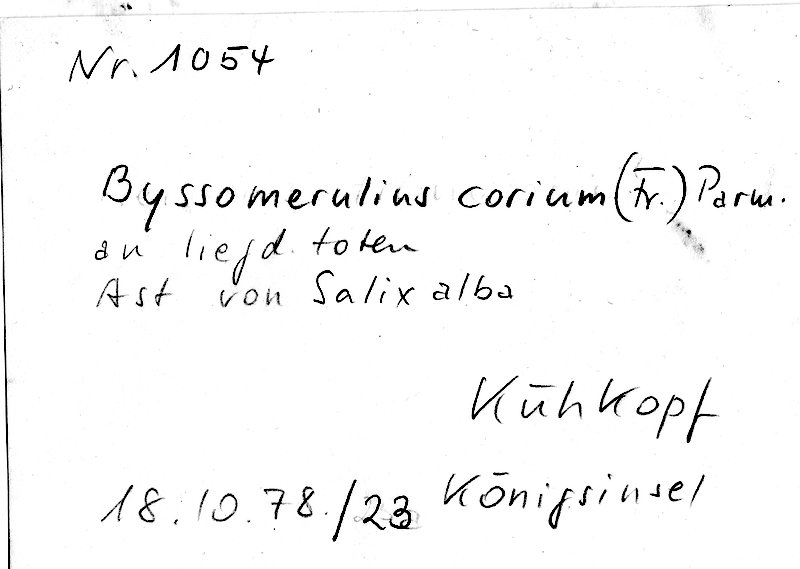 Nr. 1054
Byssomerulius corium (Fr.) Parm.
an liegd. toten
Ast von Salix alba
Kühkopf
18.10.78./23 Königsinsel